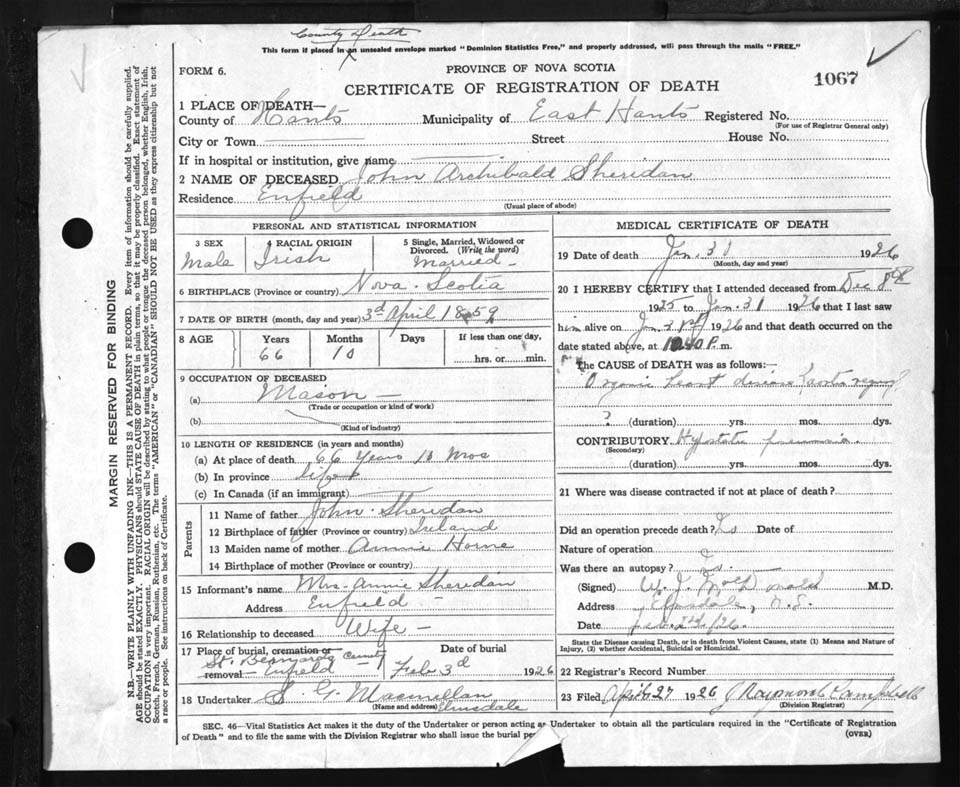 County Death
This form if placed in an unsealed envelope marked "Dominion Statistics Free," and properly addressed, will pass through the mails "FREE."
FORM 6.
PROVINCE OF NOVA SCOTIA
CERTIFICATE OF REGISTRATION OF DEATH
1067
1 PLACE OF DEATH—
County of Hants Municipality of East Hants Registered No.
(For use of Registrar General only)
City or Town Street House No.
If in hospital or institution, give name
2 NAME OF DECEASED John Archibald Sheridan
Residence Enfield
(Usual place of abode)
PERSONAL AND STATISTICAL INFORMATION
3 SEX
Male
4 RACIAL ORIGIN
Irish
5 Single, Married, Widowed or Divorced. (Write the word)
Married
6 BIRTHPLACE (Province or country) Nova Scotia
7 DATE OF BIRTH (month, day and year) 3d April 1859
8 AGE Years Months If less than one day,
66 10 hrs. or min.
9 OCCUPATION OF DECEASED
(a) Mason
(Trade or occupation or kind of work)
(b)
(Kind of industry)
10 LENGTH OF RESIDENCE (in years and months)
(a) At place of death 66 years 10 Mos
(b) In province life
(c) In Canada (if an immigrant)
Parents
11 Name of father John Sheridan
12 Birthplace of father (Province or country) Ireland
13 Maiden name of mother Annie Horne
14 Birthplace of mother (Province or country)
15 Informant's name Mrs. Annie Sheridan
Address Enfield
16 Relationship to deceased Wife
17 Place of burial, cremation or removal Date of burial
St. Bernards County
Enfield Feb 3d 1926
18 Undertaker S. G. Macmillan
(Name and address) Elmsdale
MEDICAL CERTIFICATE OF DEATH
19 Date of death Jan. 31 1926
(Month, day and year)
20 I HEREBY CERTIFY that I attended deceased from Dec 8th
1925 to Jan. 31 1926 that I last saw
him alive on Jan 1926 and that death occurred on the
date stated above, at P. m.
The CAUSE of DEATH was as follows:—
Organic heart disease
? (duration) yrs. mos. dys.
CONTRIBUTORY Hypostatic pneumonia
(Secondary)
(duration) yrs. mos. dys.
21 Where was disease contracted if not at place of death?
Did an operation precede death? Date of
Nature of operation
Was there an autopsy?
(Signed) W. J. M.D.
Address N. S.
Date
State the Disease causing Death, or in death from Violent Causes, state (1) Means and Nature of
Injury, (2) whether Accidental, Suicidal or Homicidal.
22 Registrar's Record Number
23 Filed April 27 1926 J Raymond Campbell
(Division Registrar)
SEC. 46—Vital Statistics Act makes it the duty of the Undertaker or person acting as Undertaker to obtain all the particulars required in the "Certificate of Registration
of Death" and to file the same with the Division Registrar who shall issue the burial
(OVER)
MARGIN RESERVED FOR BINDING
N.B.—WRITE PLAINLY WITH UNFADING INK—THIS IS A PERMANENT RECORD. Every item of information should be carefully supplied.
AGE should be stated EXACTLY. PHYSICIANS should STATE CAUSE OF DEATH in plain terms, so that it may be properly classified. Exact statement of
OCCUPATION is very important. RACIAL ORIGIN will be described by stating to what people or tongue the deceased person belonged, whether English, Irish,
Scotch, French, German, Russian, Ruthenian, etc. The terms "AMERICAN" or "CANADIAN" SHOULD NOT BE USED as they express citizenship but not
a race or people. See instructions on back of Certificate.